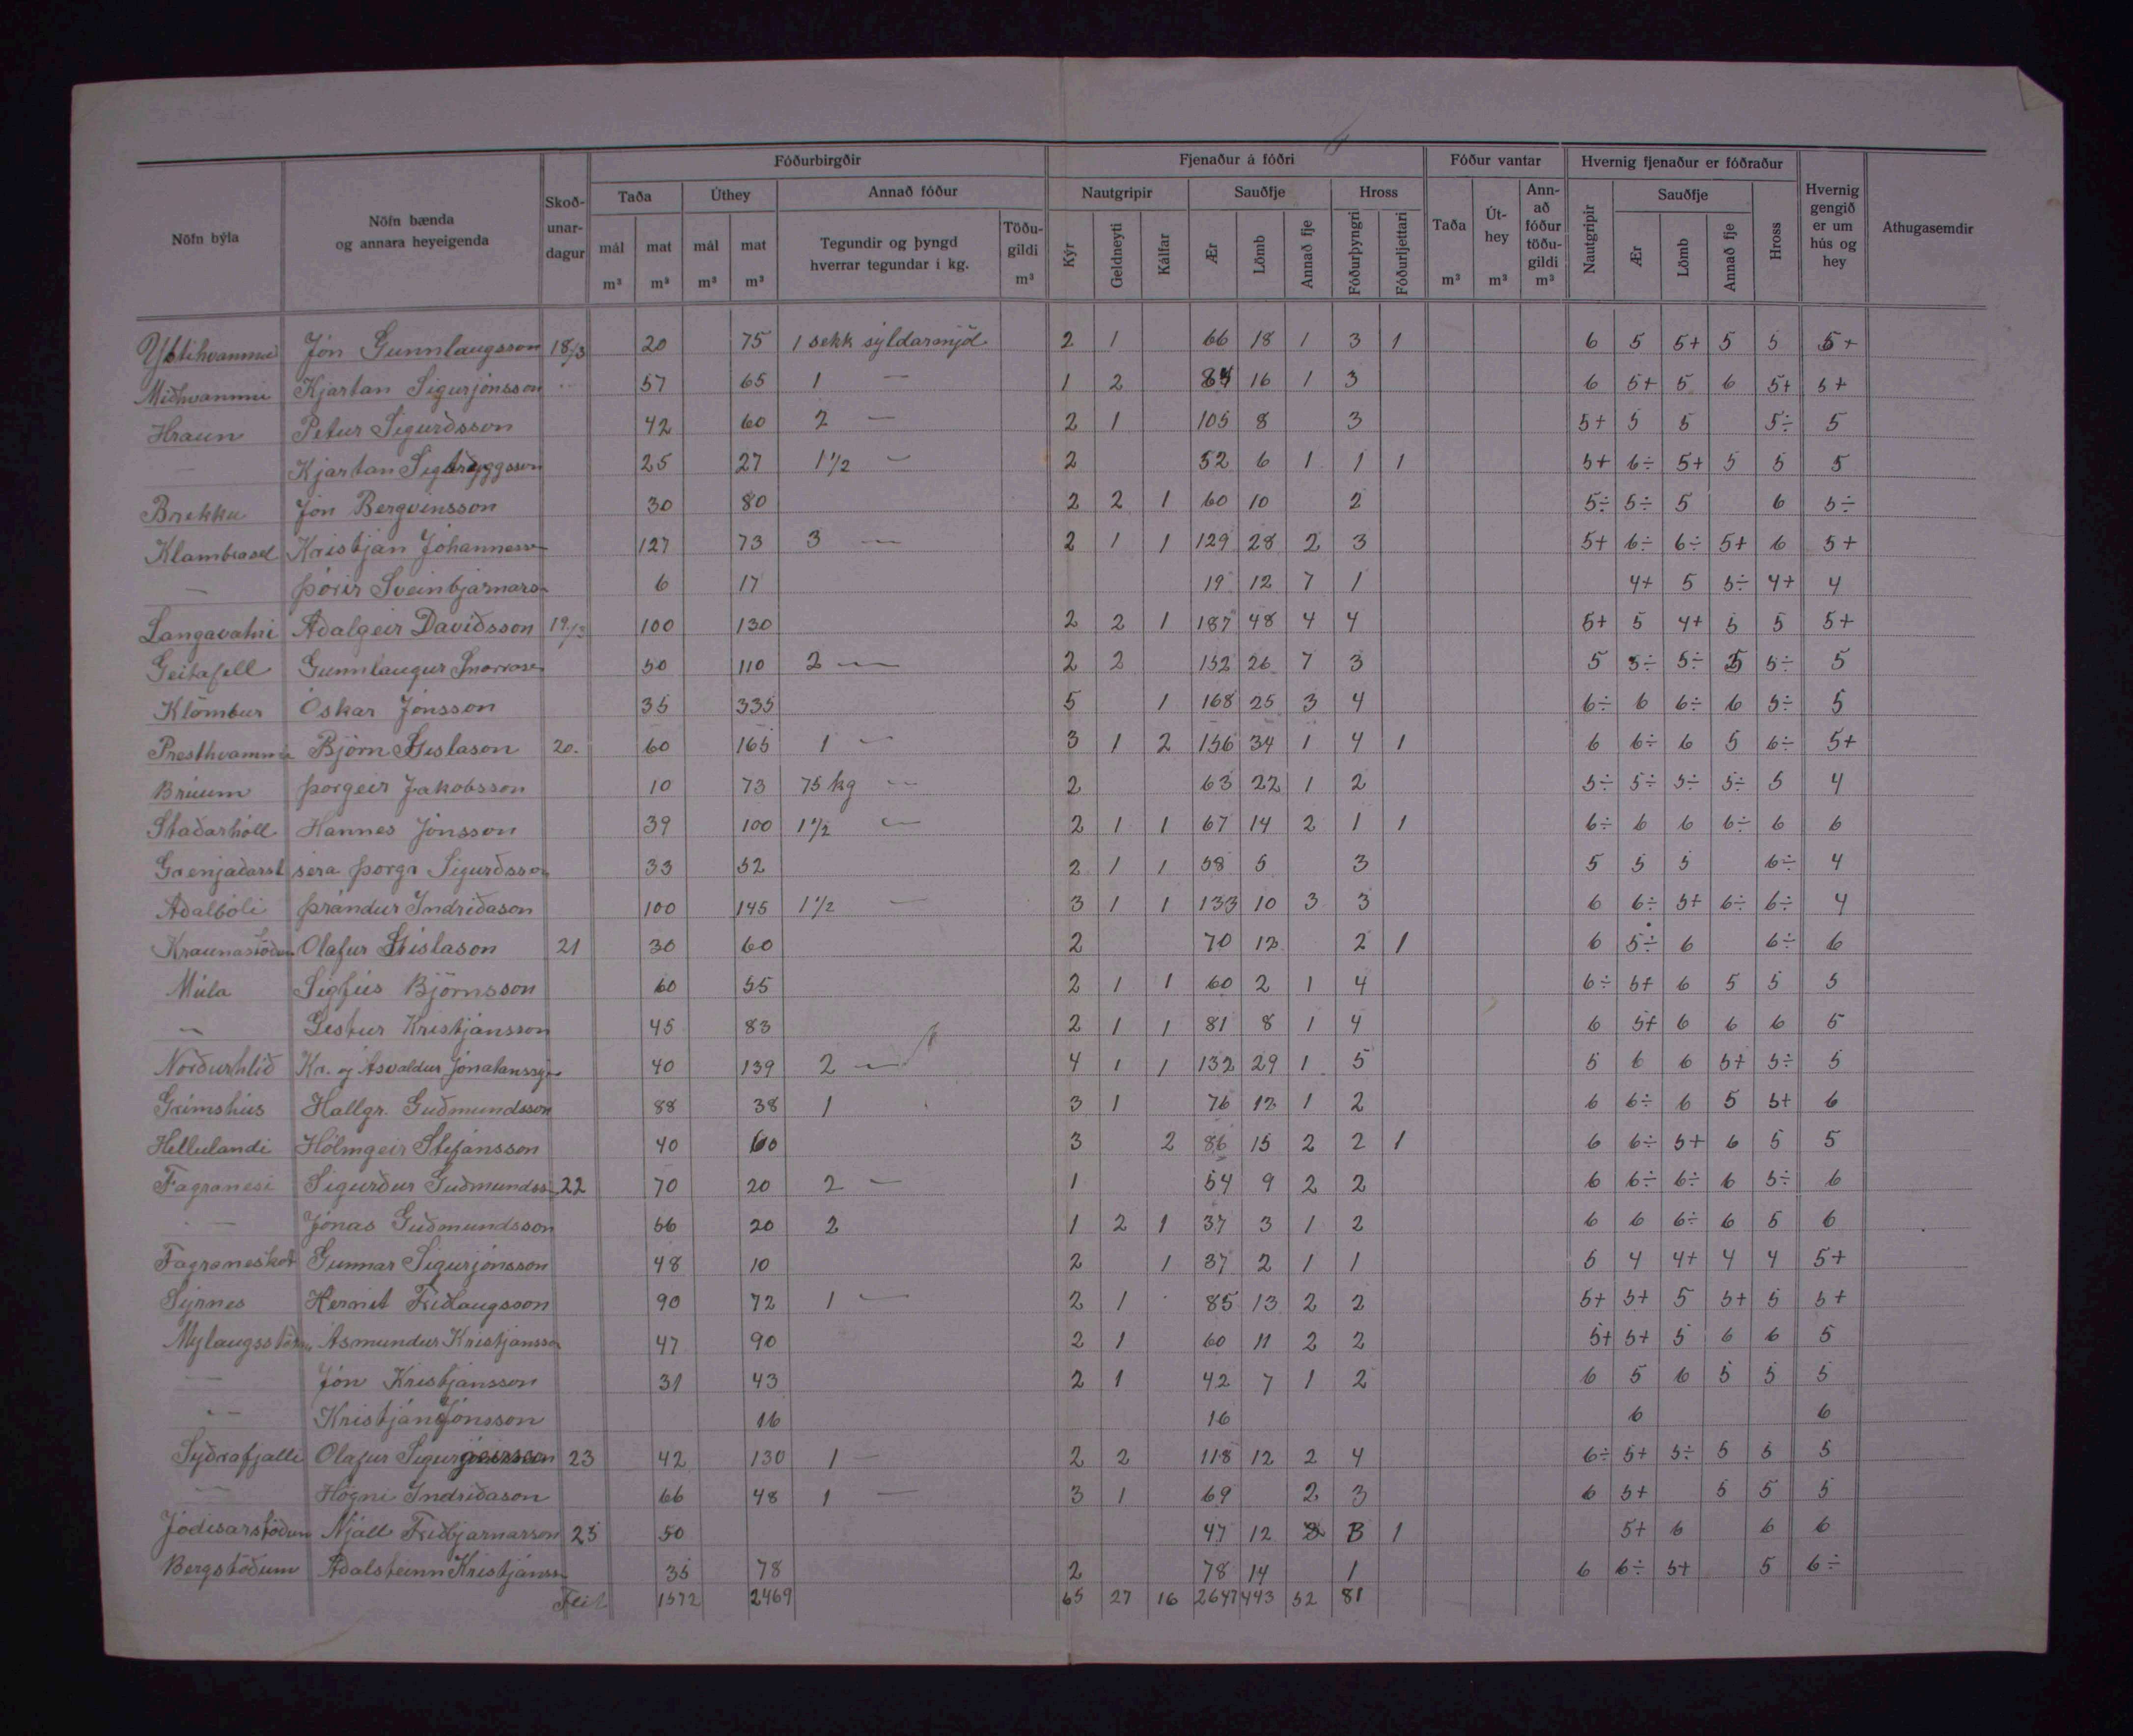 Fóðurbirgðir Fjenaður á fóðri Fóður vantar Hvernig fjenaður er fóðraður
Nöfn býla Nöfn bænda og annara heyeigenda Skoð-unar-dagur Taða Úthey Annað fóður Nautgripir Sauðfje Hross Taða Út-hey Ann-að fóður töðu-gildi Nautgripir Sauðfje Hross Hvernig gengið er um hús og hey Athugasemdir
mál mat mál mat Tegundir og þyngd hverrar tegundar í kg. Töðu-gildi Kýr Geldneyti Kálfar Ær Lömb Annað fje Fóðurþyngri Fóðurljettari Ær Lömb Annað fje
m³ m³ m³ m³ m³ m³ m³ m³
Ystihvammi Jón Gunnlaugsson 18/3 20 75 1 sekk syldarmjöl 2 1 66 18 1 3 1 6 5 5+ 5 5 5+
Miðhvammi Kjartan Sigurjónsson 57 65 1 — 1 2 84 16 1 3 6 5+ 5 6 5+ 5+
Hraun Petur Sigurðsson 42 60 2 — 2 1 105 8 3 5+ 5 5 5÷ 5
— Kjartan Sigtryggsson 25 27 1 1/2 — 2 52 6 1 1 1 5+ 6÷ 5+ 5 5 5
Brekku Jón Bergvinsson 30 80 2 2 1 60 10 2 5÷ 5÷ 5 6 5÷
Klambrasel Kristján Jóhannesson 127 73 3 — 2 1 1 129 28 2 3 5+ 6÷ 6÷ 5+ 6 5+
— Þórir Sveinbjarnars 6 17 19 12 7 1 4+ 5 5÷ 4+ 4
Langavatni Aðalgeir Davíðsson 19/3 100 130 2 2 1 187 48 4 4 5+ 5 4+ 5 5 5+
Geitafell Gunnlaugur Snorrason 50 110 2 — 2 2 152 26 7 3 5 5÷ 5÷ 5 5÷ 5
Klömbur Óskar Jónsson 35 335 5 1 168 25 3 4 6÷ 6 6÷ 6 5÷ 5
Presthvammi Björn Gíslason 20. 60 165 1 — 3 1 2 156 34 1 4 1 6 6÷ 6 5 6÷ 5+
Brúum Þorgeir Jakobsson 10 73 75 kg — 2 63 22 1 2 5÷ 5÷ 5÷ 5÷ 5 4
Staðarhóll Hannes Jónsson 39 100 1 1/2 — 2 1 1 67 14 2 1 1 6÷ 6 6 6÷ 6 6
Grenjaðarst séra Þorgr Sigurðsson 33 52 2 1 1 58 5 3 5 5 5 6÷ 4
Aðalbóli Þrándur Indriðason 100 145 1 1/2 — 3 1 1 133 10 3 3 6 6÷ 5+ 6÷ 6÷ 4
Kraunastöðum Olafur Gíslason 21 30 60 2 70 12 2 1 6 5÷ 6 6÷ 6
Múla Sigfús Björnsson 60 55 2 1 1 60 2 1 4 6÷ 5+ 6 5 5 5
— Gestur Kristjánsson 45 83 2 1 1 81 8 1 4 6 5+ 6 6 6 5
Norðurhlíð Kr. og Ásvaldur Jónatanssynir 40 139 2 — 4 1 1 132 29 1 5 5 6 6 5+ 5÷ 5
Grímshús Hallgr. Guðmundsson 88 38 1 3 1 76 12 1 2 6 6÷ 6 5 5+ 6
Hellulandi Hólmgeir Stefánsson 40 60 3 2 86 15 2 2 1 6 6÷ 5+ 6 5 5
Fagranesi Sigurður Guðmundss 22 70 20 2 — 1 54 9 2 2 6 6÷ 6÷ 6 5÷ 6
— Jónas Guðmundsson 56 20 2 1 2 1 37 3 1 2 6 6 6÷ 6 5 6
Fagraneskot Gunnar Sigurjónsson 48 10 2 1 37 2 1 1 5 4 4+ 4 4 5+
Sýrnes Hermit Friðlaugsson 90 72 1 — 2 1 85 13 2 2 5+ 5+ 5 5+ 5 5+
Mýlaugsstöðum Ásmundur Kristjánsson 47 90 2 1 60 11 2 2 5+ 5+ 5 6 6 5
— Jón Kristjánsson 31 43 2 1 42 7 1 2 6 5 6 5 5 5
— Kristján Jónsson 16 16 6 6
Sýðrafjalli Olafur Sigurgeirsson 23 42 130 1 — 2 2 118 12 2 4 6÷ 5+ 5÷ 5 5 5
— Högni Indriðason 66 48 1 — 3 1 69 2 3 6 5+ 5 5 5
Jódísarstöðum Njáll Friðbjarnarson 25 50 47 12 B 1 5+ 6 6 6
Bergstöðum Aðalsteinn Kristjánss 35 78 2 78 14 1 6 6÷ 5+ 5 6÷
1572 2469 65 27 16 2647 443 52 81